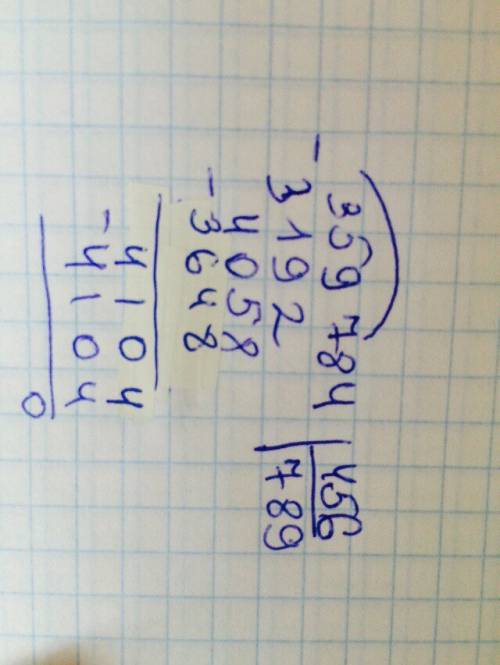 - 359784 | 456
3192 | 789
4058
- 3648
4104
- 4104
0